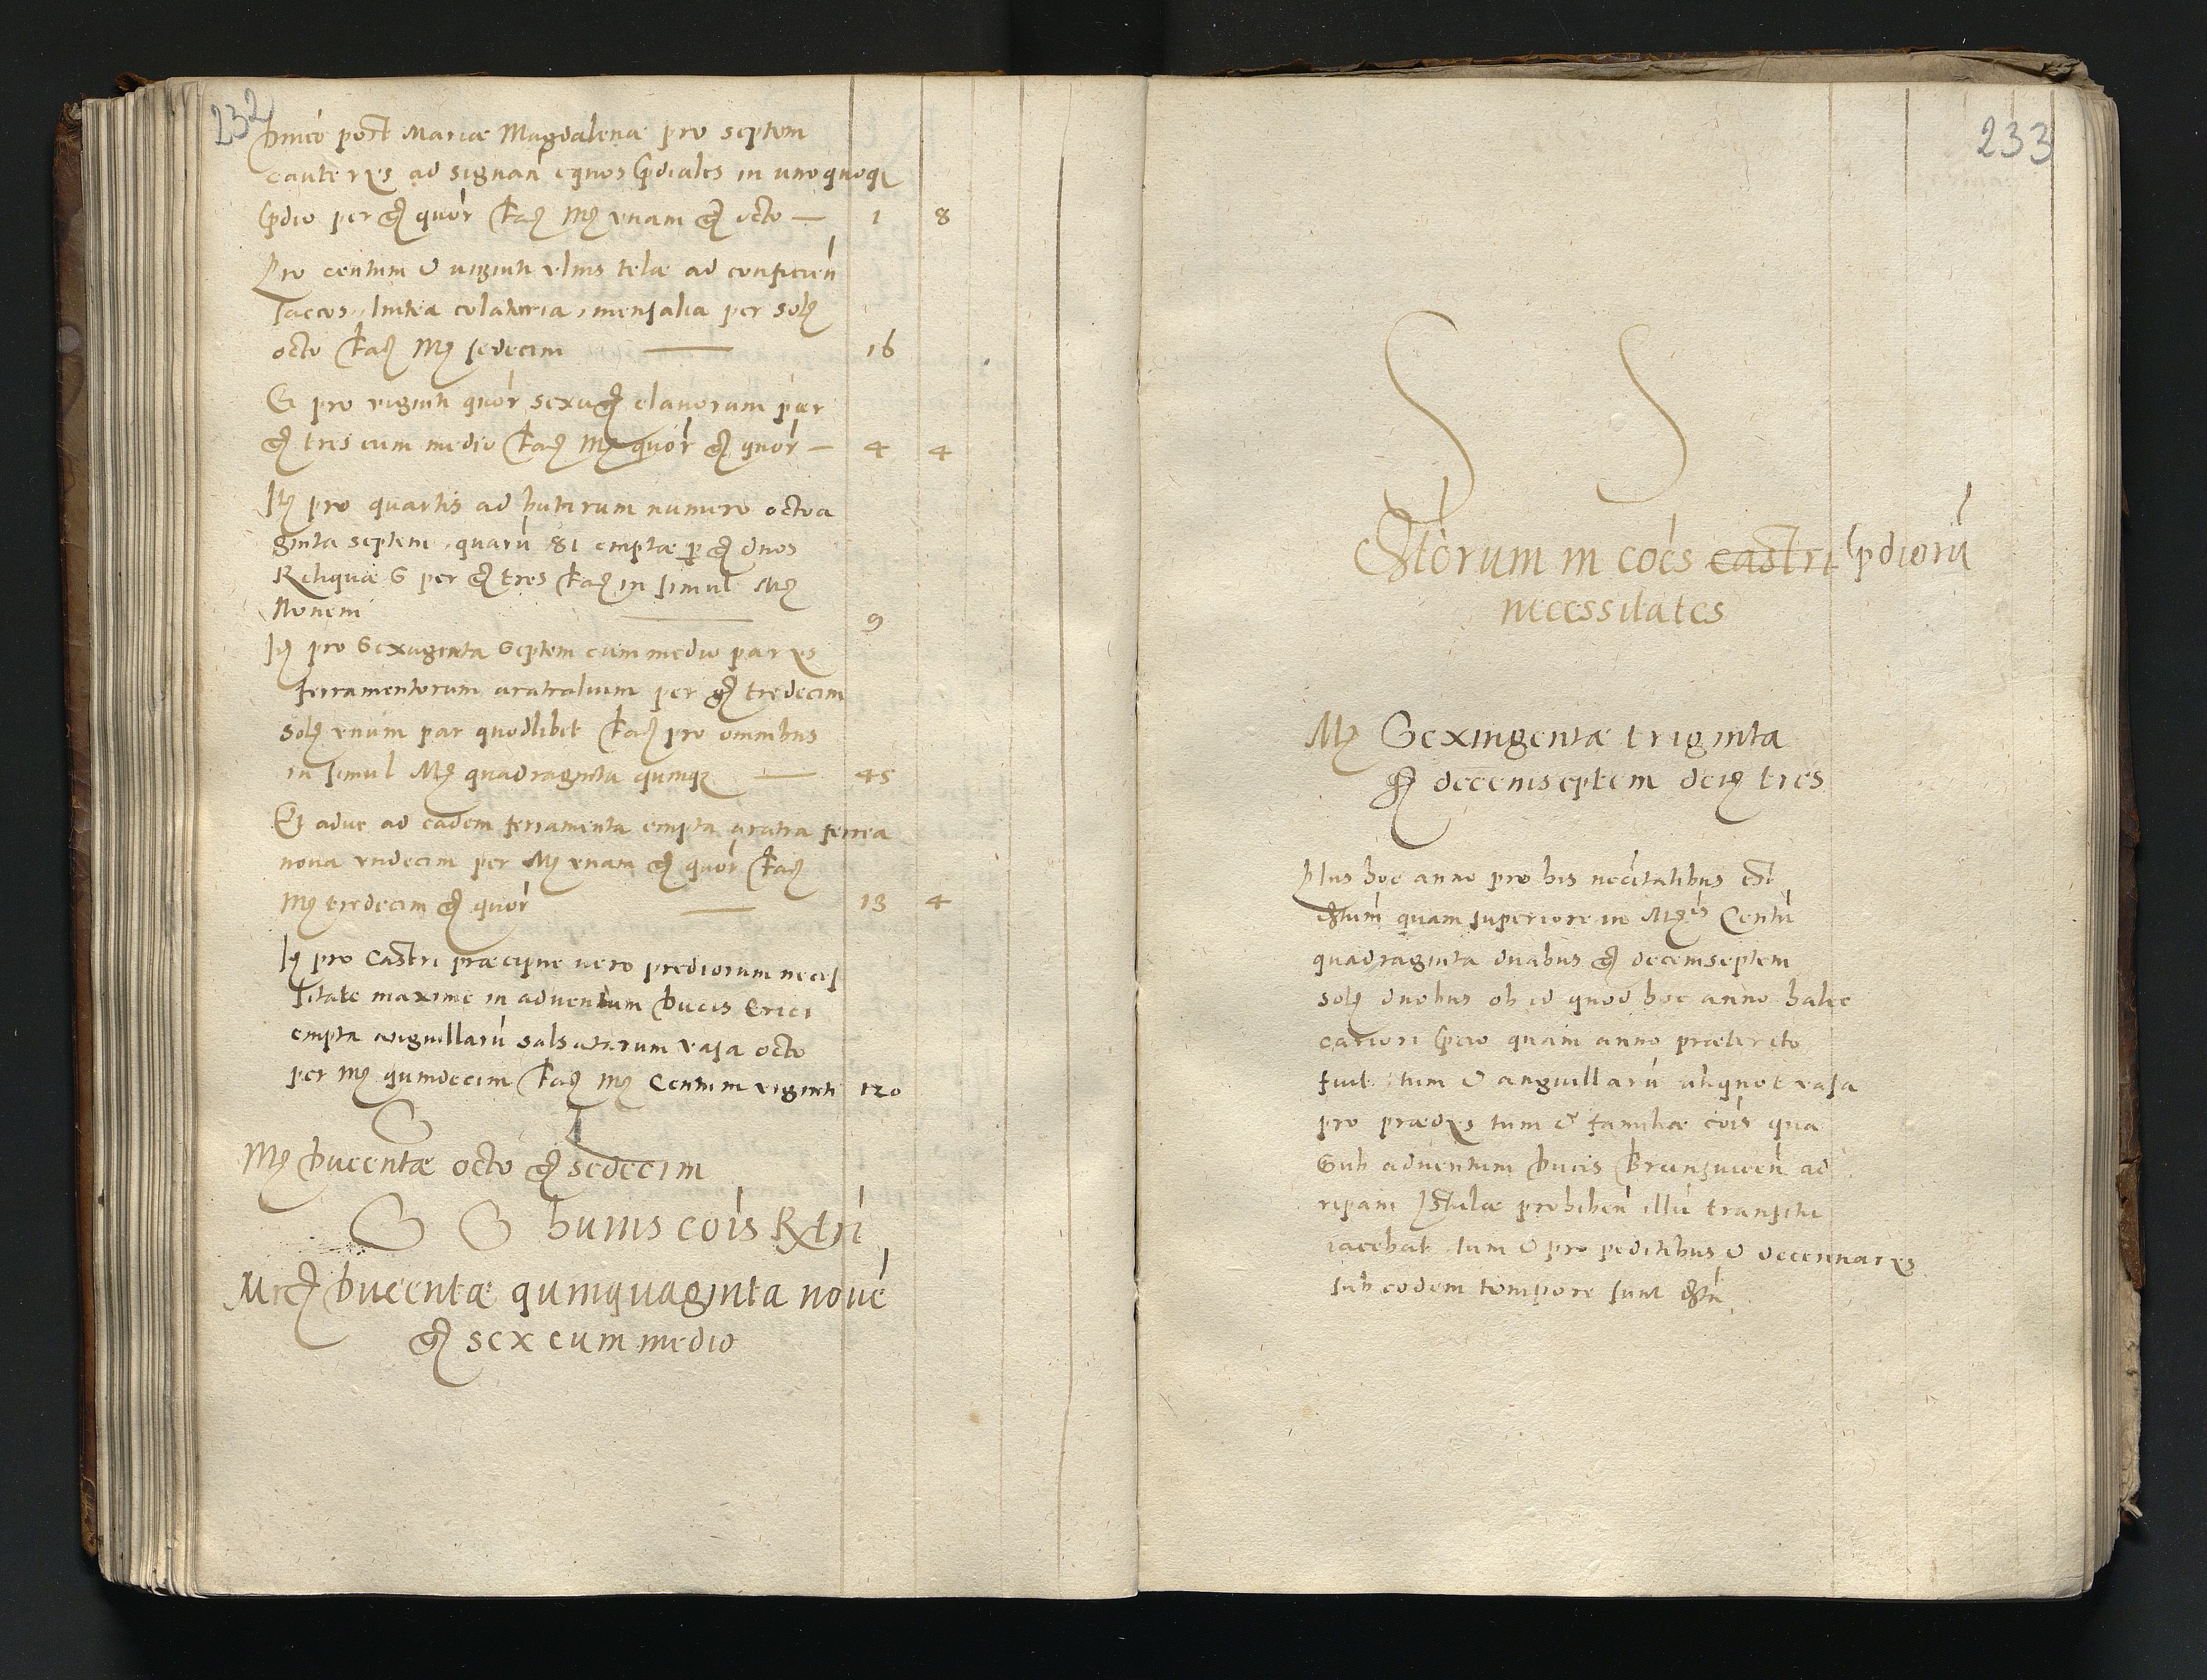 232
Dnico post Mariæ Magdalenæ pro septem
cauteres ad signan equos pdiales in unoquoq
pdio per g quor fac Mr vnam g octo — 1 8
Pro centum & uiginti vlnis telæ ad conficien
saccos, lintea colatoria, mensalia per sol
octo fac Mr sedecim — 16
Et pro viginti quor sexag clauorum per
g tres cum medio fac Mr quor g quor — 4 4
It pro quartis ad butirum numero octoa
ginta septem, quaru 81 emptæ p g duos
Reliquæ 6 per g tres fac in simul Mr
Novem — 9
It pro Sexaginta Septem cum medio pares
ferramentorum aratralium per g tredecim
sol vnum par quodlibet fac pro omnibus
in simul Mr quadraginta quinq — 45
Et aduc ad eadem ferramenta empta aratra ferrea
noua vndecim per Mr vnam g quor fac
Mr tredecim g quor — 13 4
It pro Castri præcipue uero prediorum neces
sitate maxime in aduentum Ducis Erici
empta anguillaru salsatarum vasa octo
per Mr quindecim fac Mr Centum viginti 120
S
Mr Ducentæ octo g sedecim
S S huius cois Rxtri
Mrc Ducentæ quinquaginta noue
g sex cum medio
233
S S
Extorum in coes castri pdioru
necessitates
Mr Sexingentæ triginta
g decemseptem den tres
Plus hoc anno pro his necitatibus est
extum quam superiore in Mris Centu
quadraginta duabus g decemseptem
sol duobus ob id quod hoc anno halec
cariori pcio quam anno præterito
fuit, tum & anguillaru aliquot vasa
pro prædes tum & familiæ cois qua
Sub aduentum Ducis Brunsuicen ad
ripam Istulæ prohiben illu transitu
iacebat, tum & pro peditibus & decennares
sub eodem tempore sunt exta